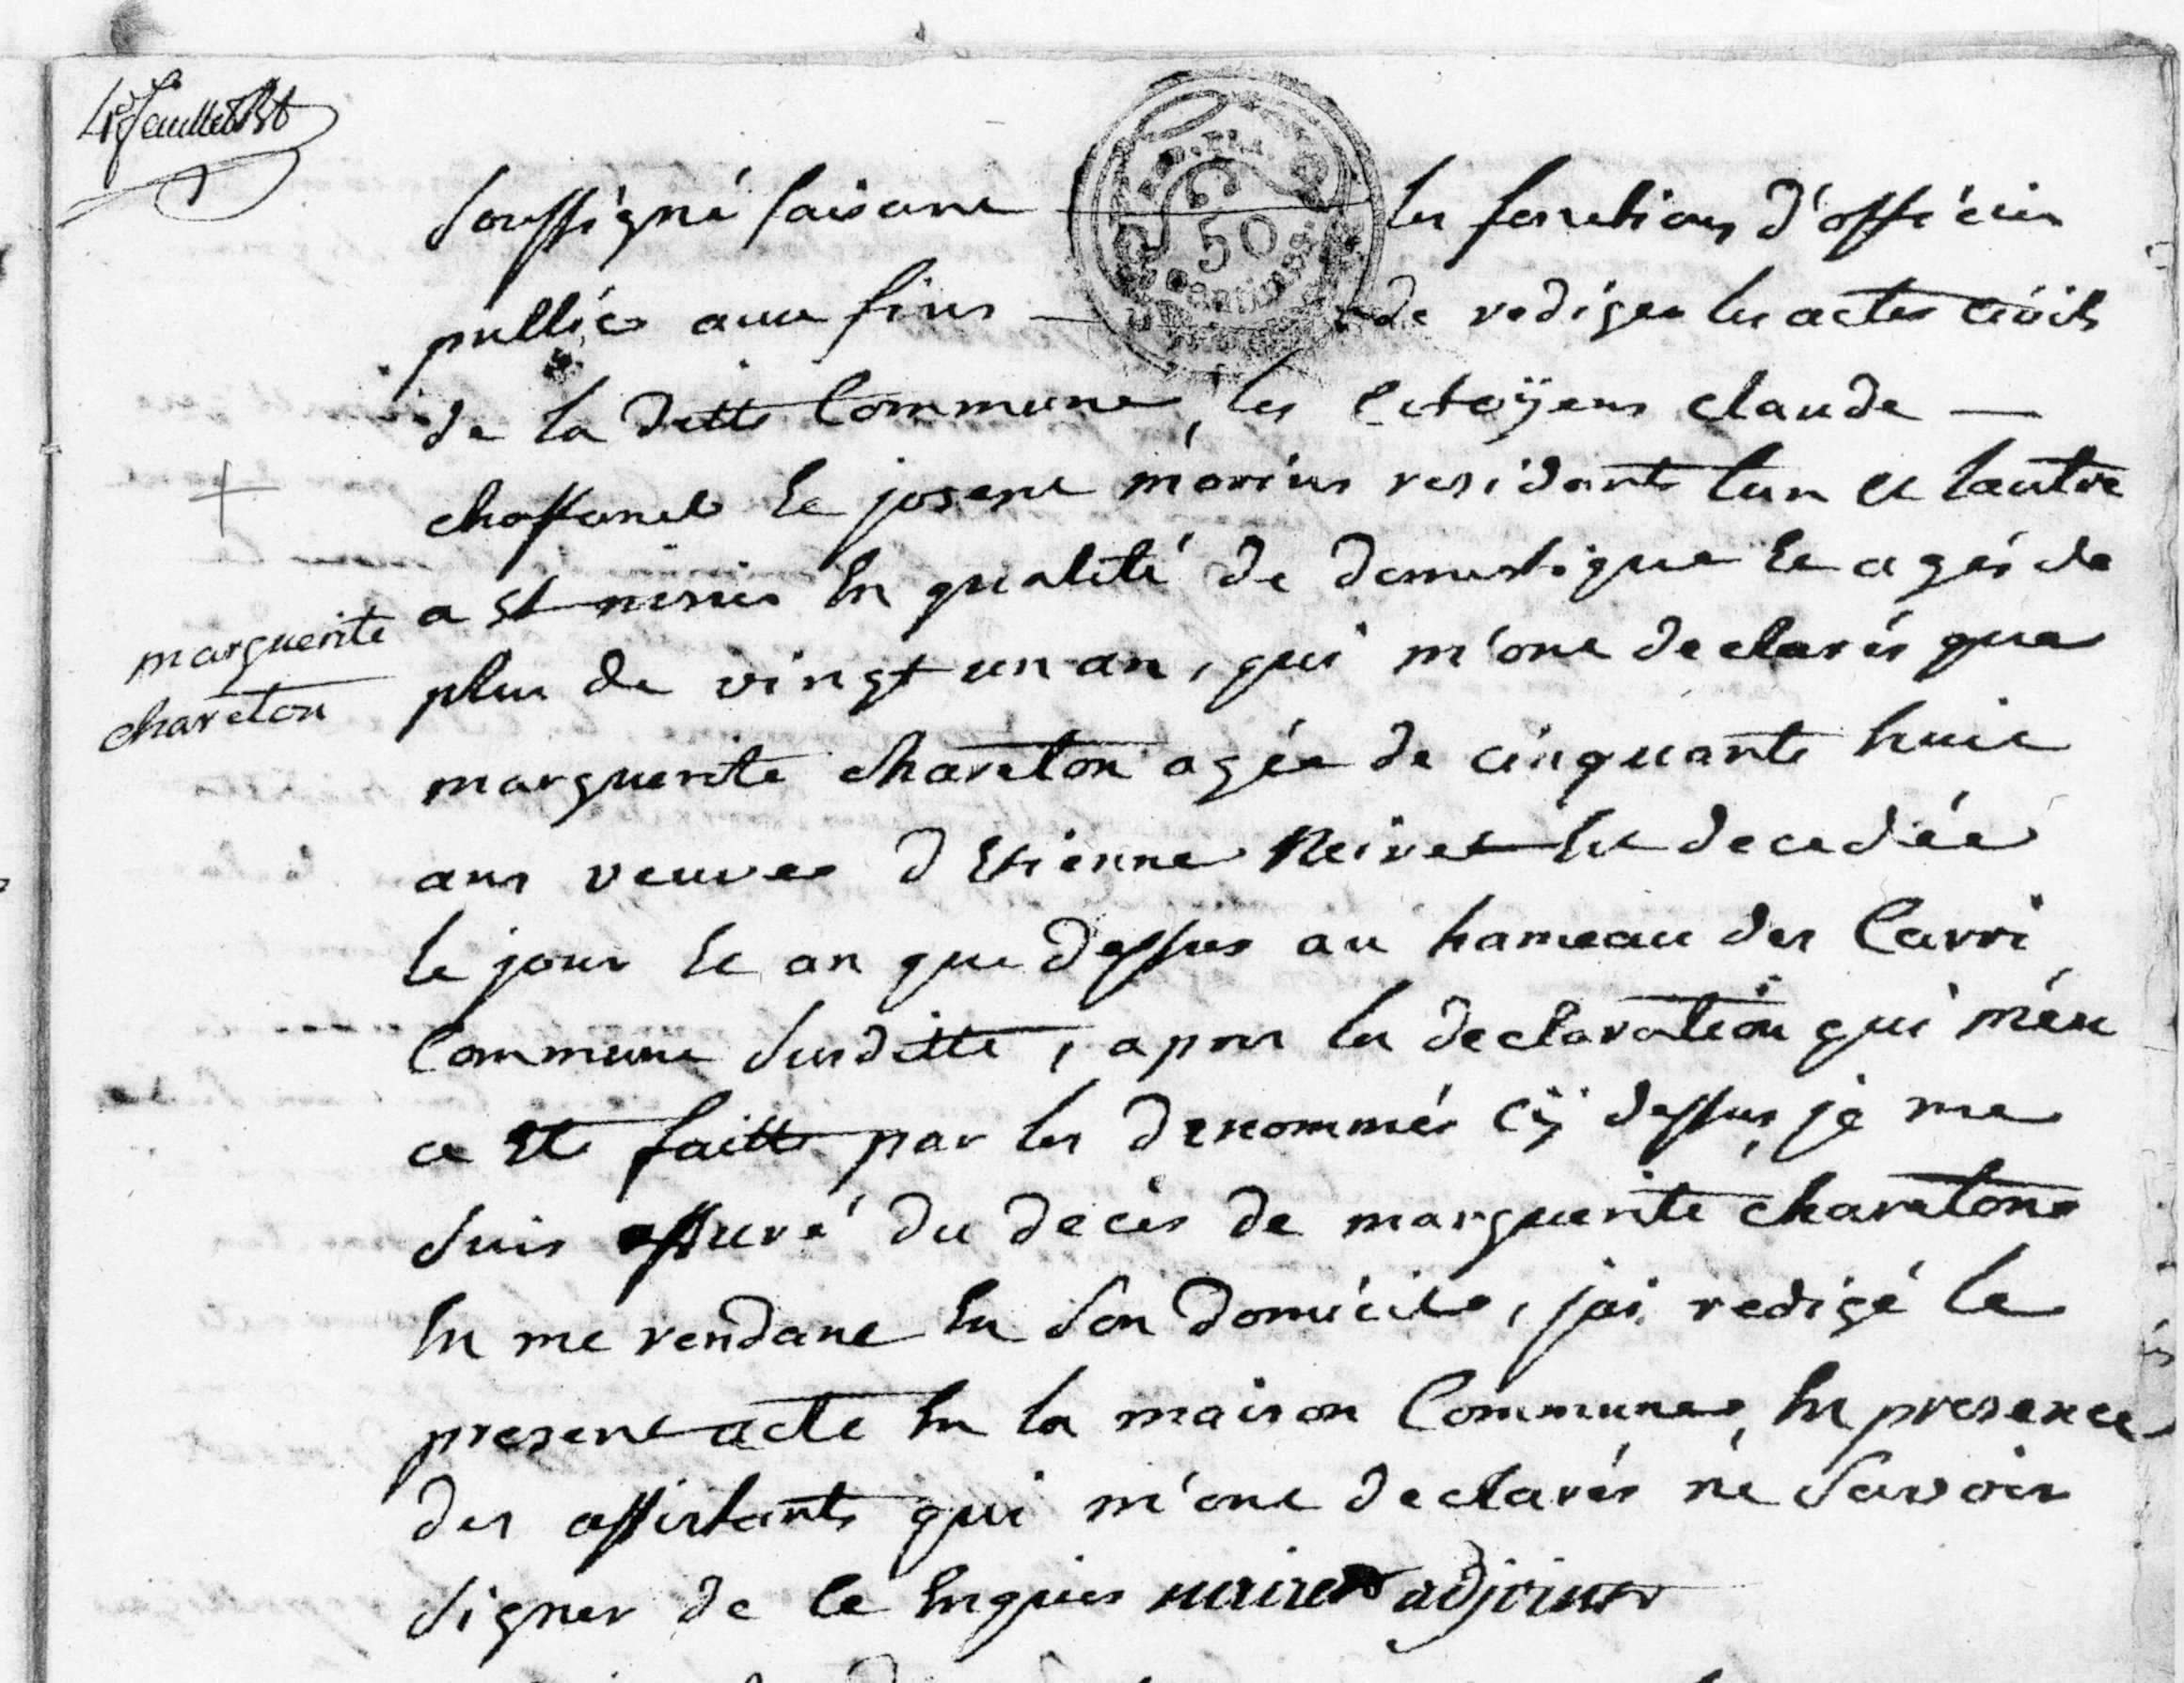 4e feuillet
soussigné faisant les fonctions d'officier
50
pullic aux fins — de rediger les actes civils
de la ditte Commune, les Citoÿens claude —
choffanel et josept marins residants lun et lautre
a st en qualité de domestique et agés de
plus de vingt un an, qui m'ont declarés que
marguerite
chareton
marguerite chareton agée de cinquante huit
ans veuve d Etienne Neiret est decedée
le jour et an que dessus au hameau des Carri
Commune susditte, apres la declaration qui m'en
a ete faitte par les denommés cÿ dessus, je me
suis assuré du deces de marguerite charetone
en me rendant en son domicile, jai redigé le
present acte en la maison Commune, en presence
des assistants qui m'ont declarés ne savoir
signer de ce enquis adjoint